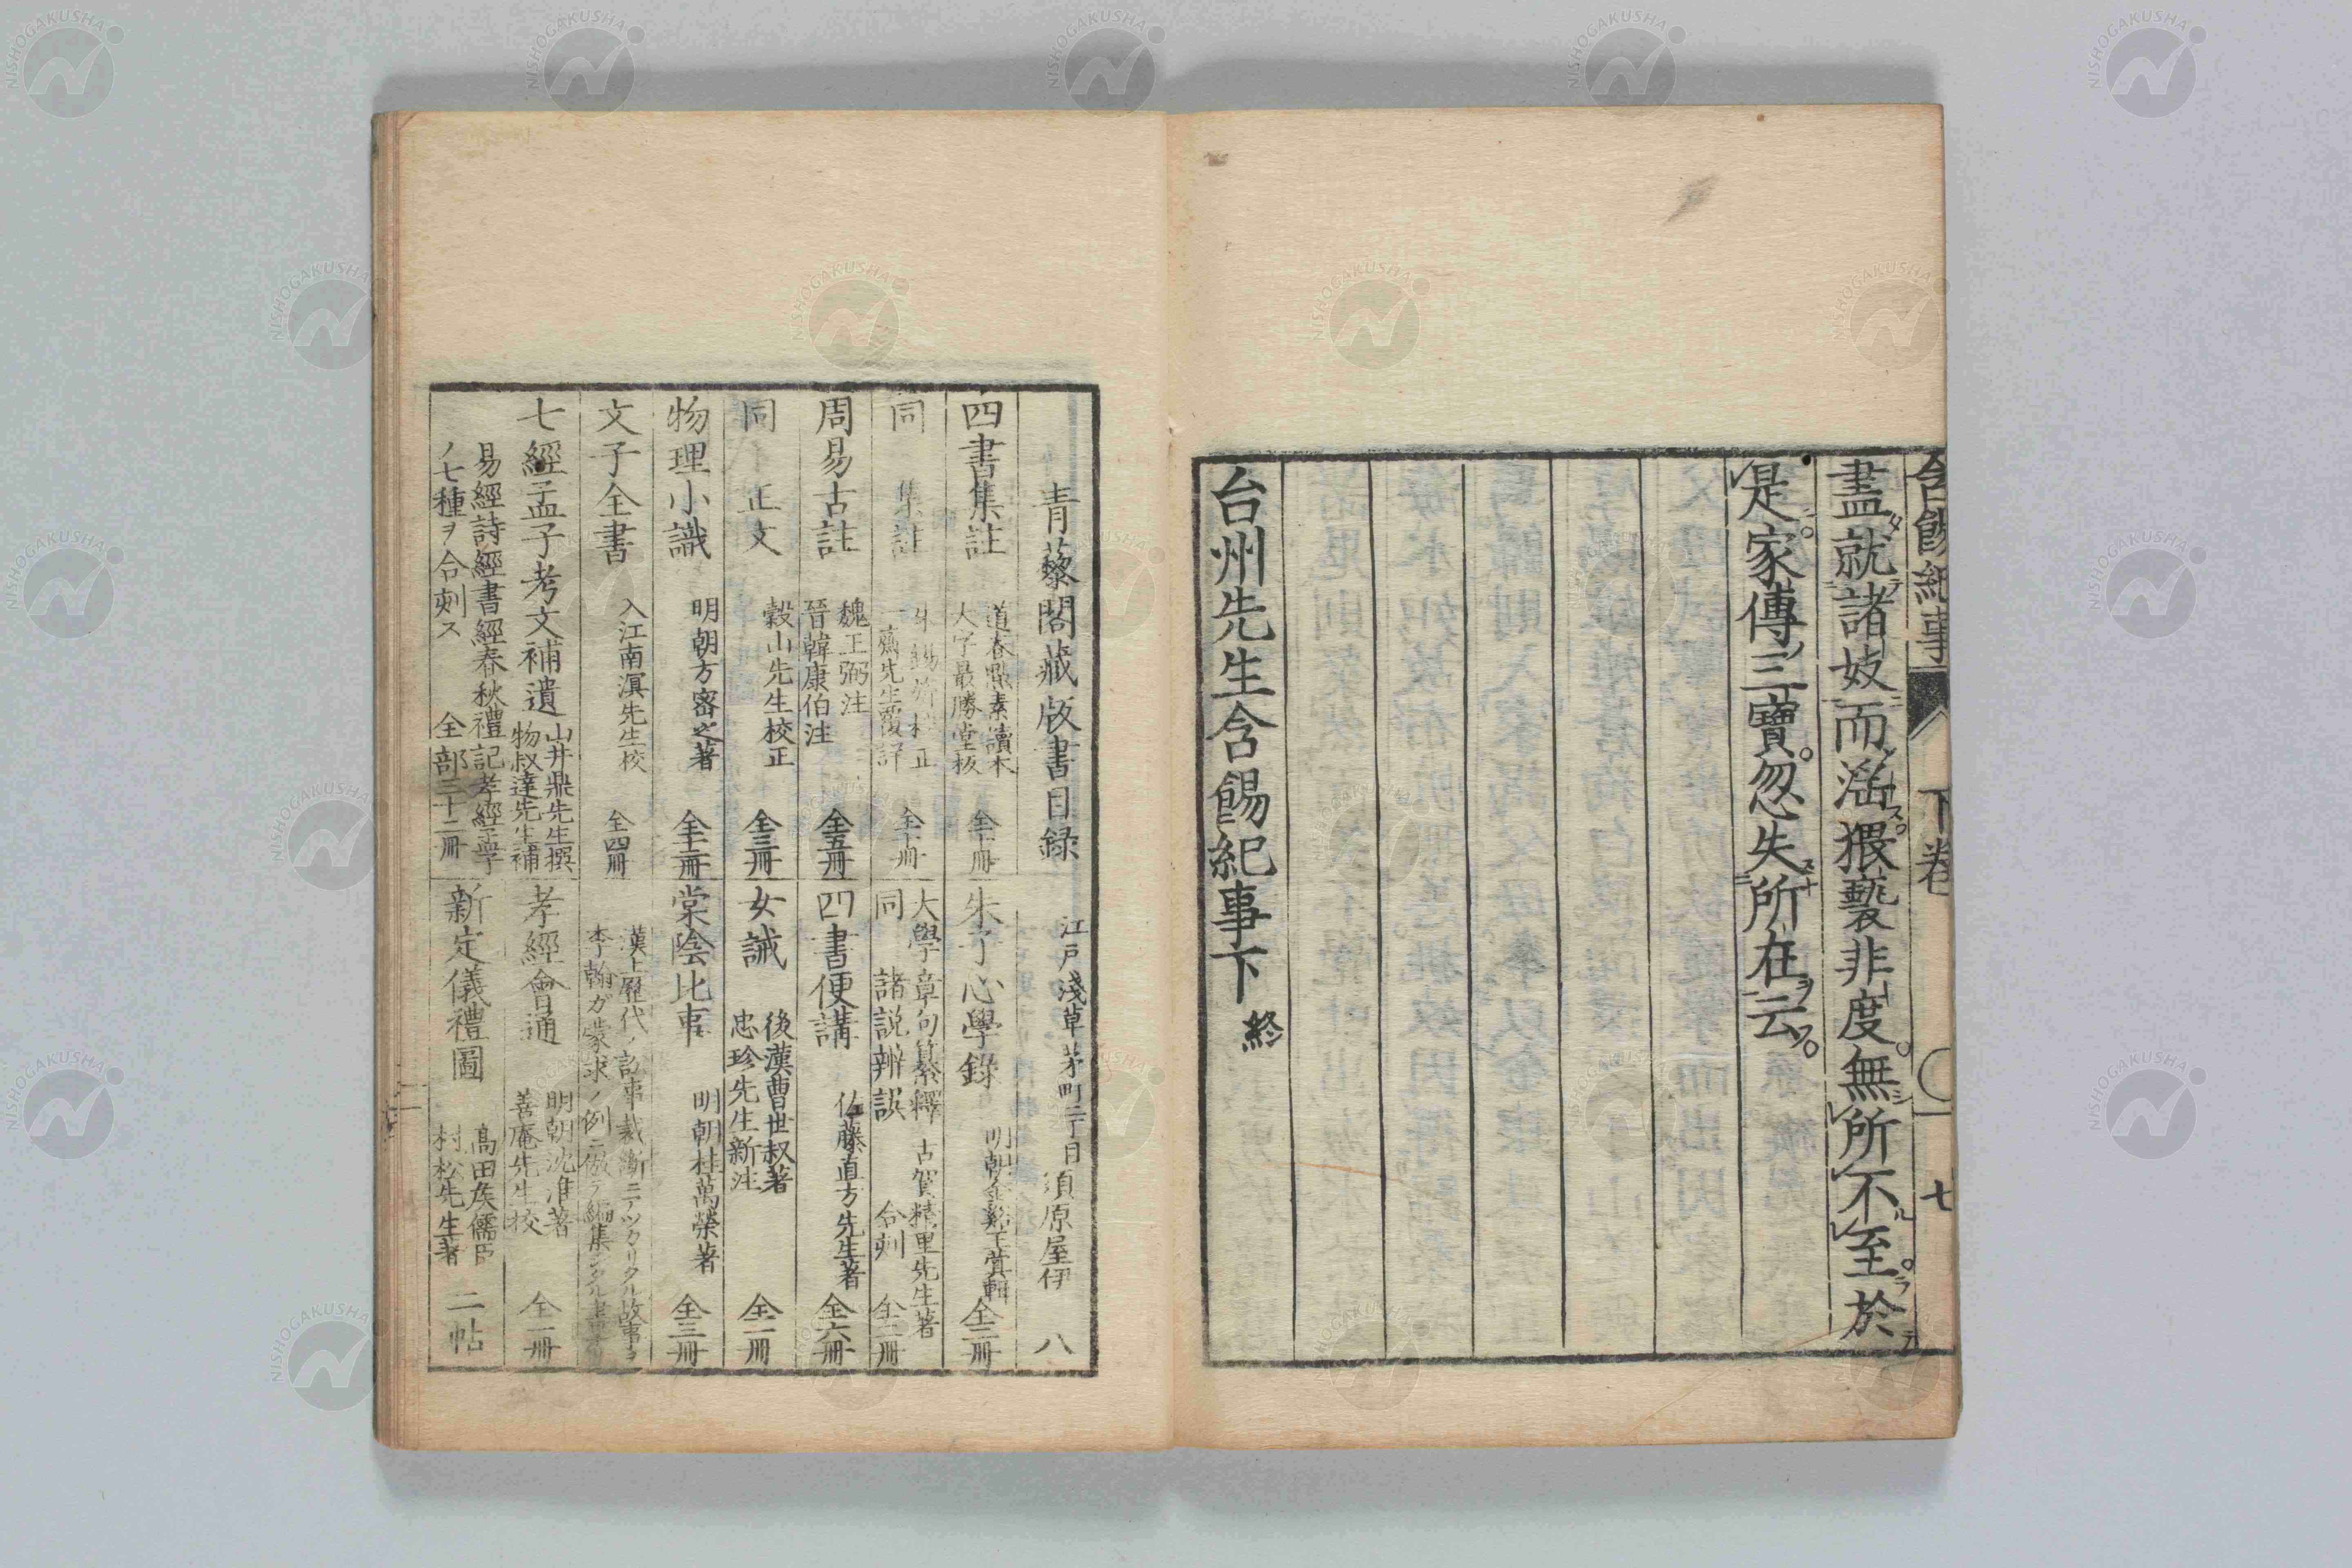 含餳紀事 下卷 〇 七
盡就諸妓而淫猥褻非度無所不至於
是家傳三寶忽失所在云
台州先生含餳紀事下 終
青藜閣藏版書目録 江戸淺草茅町二丁目 須原屋伊八
四書集註 道春點素讀本 大字最勝堂板 全十冊
同 集註 一齋先生覆訂 全十冊
周易古註 魏王弼注 晉韓康伯注 全五冊
同 正文 穀山先生校正 全三冊
物理小識 明朝方密之著 全十二冊
文子全書 入江南溟先生校 全四冊
七經孟子考文補遺 山井鼎先生撰 物叔達先生補
易經詩經書經春秋禮記孝經孟子
ノ七種ヲ合刻ス 全部三十二冊
朱子心學錄 明朝金谿王蓂輯 全二冊
大學章句纂釋 古賀精里先生著
同 諸説辨誤 合刻 全二冊
四書便講 佐藤直方先生著 全六冊
女誡 後漢曹世叔著 忠珍先生新注 全一冊
棠陰比事 明朝桂萬榮著 全三冊
漢土歷代ノ訟事裁斷ニアツカリタル故事ヲ
李翰ガ蒙求ノ例ニ倣ラ編集シタル書
孝經會通 明朝沈淮著 善庵先生校 全一冊
新定儀禮圖 髙田矦儒臣 村松先生著 二帖
NISHOGAKUSHA